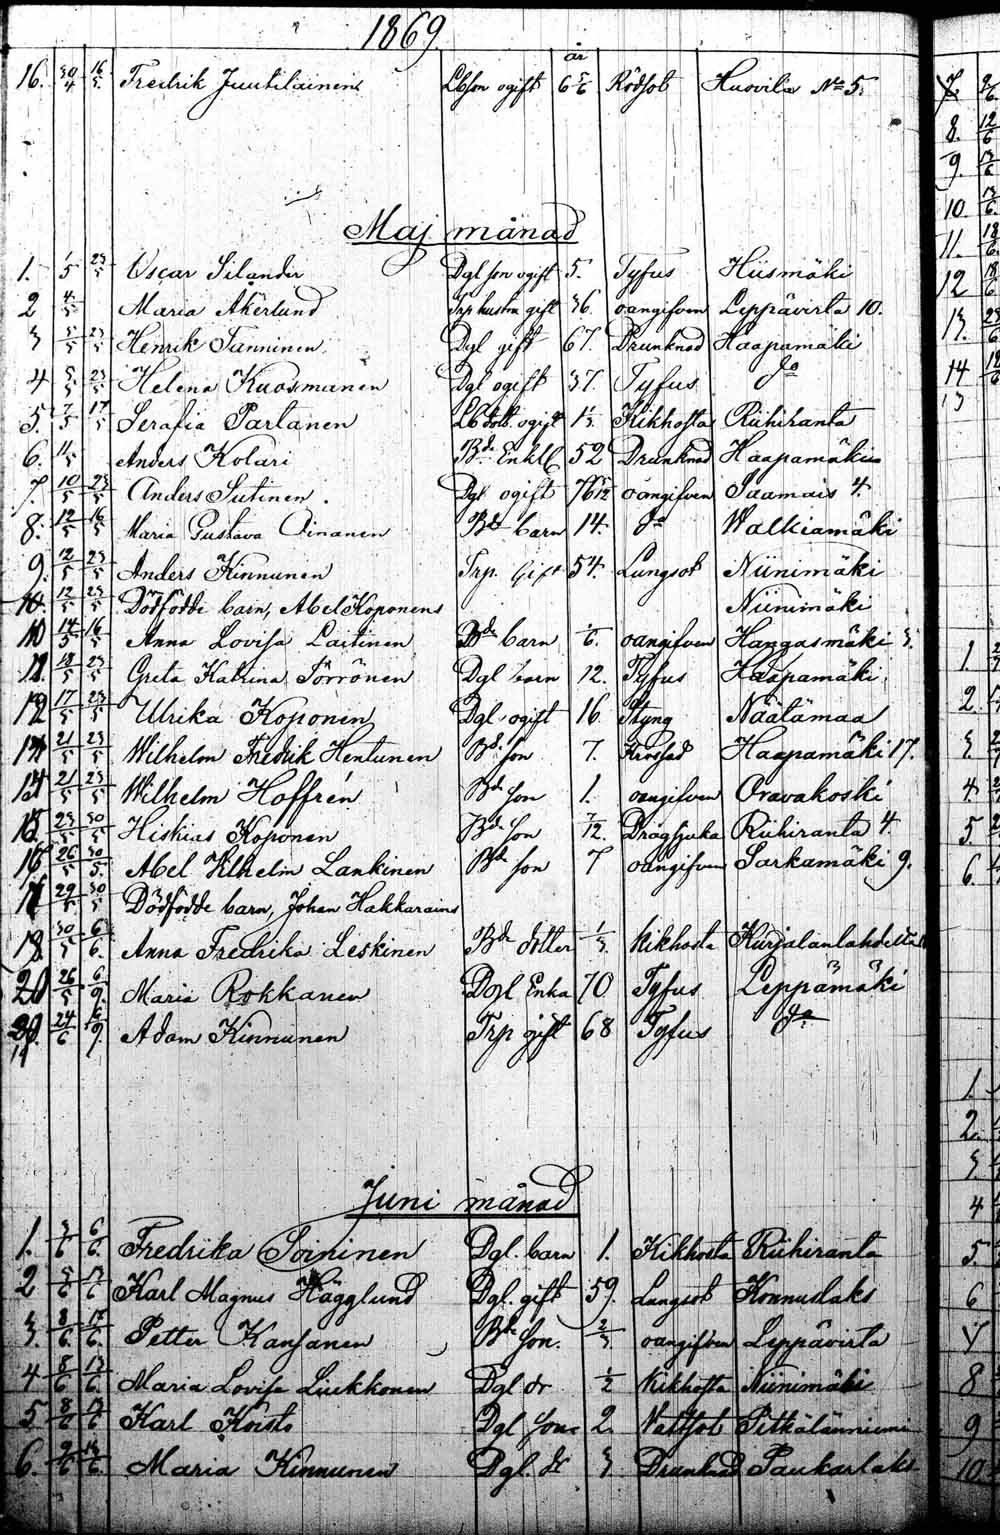 1869
år
16. 30/4 16/5. Fredrik Juutilainen Lbson ogift 6 5/6 Rödsot Huovila No 5.
Maj månad
1. 1/5 23/5 Oscar Silander Dgl son ogift 5. Tyfus Hiismäki
2 4/5 Maria Åkerlund Inp hustru gift 36. oangifven Leppävirta 10.
3 5/5 23/5 Henrik Tanninen Dgl gift 67. Drunknad Haapamäki
4 5/5 23/5 Helena Kuosmanen Dgl ogift 37. Tyfus do
5. 7/5 17/5 Serafia Partanen Lb dott. ogift Kikhosta Riihiranta
6. 11/5 Anders Kolari Bde Enkl 52 Drunknad Haapamäki
7. 10/5 23/5 Anders Sutinen. Dgl ogift oangifven Saamais 4.
8. 12/5 16/5 Maria Gustava Oinanen Bde barn 14. do Walkiamäki
9. 12/5 23/5 Anders Kinnunen Trp. Gift 54. Lungsot Niinimäki
10. 12/5 23/5 Dödfödde barn, Abel Koponens Niinimäki
10 14/5 16/5 Anna Lovisa Laitinen Bde barn 1/6. oangifven Hangasmäki 3.
18/5 23/5 Greta Katrina Törrönen Dgl barn 12. Tyfus Haapamäki
12 17/5 23/5 Ulrika Koponen Dgl ogift 16. Styng Näätämaa
21/5 23/5 Wilhelm Fredrik Hentunen Bde son 7. Haapamäki 17.
21/5 23/5 Wilhelm Hoffrén Bde son 1. oangifven Oravakoski
23/5 30/5 Hiskias Koponen Bde son 7/12. Dragsjuka Riihiranta 4.
16 26/5 30/5. Abel Vilhelm Lankinen Bde son 7 oangifven Sarkamäki 9.
29/5 30/5 Dödfödde barn, Johan Hakkarains
18 30/5 6/6. Anna Fredrika Leskinen Bde dotter 1/3. Kikhosta Kurjalanlahdelta
20 26/5 6/9. Maria Rokkanen Dgl Enka 70 Tyfus Leppämäki
24/6 6/9. Adam Kinnunen Trp gift 68 Tyfus do
Juni månad
1. 3/6 6/6. Fredrika Soininen Dgl. barn 1. Kikhosta Riihiranta
2 5/6 13/6 Karl Magnus Hägglund Dgl. gift 59. Lungsot Konnuslaks
3. 8/6. 17/6. Petter Kansanen Bde son. 2/3. oangifven Leppävirta
4 8/6 13/6. Maria Lovisa Liukkonen Dgl dr 1/2 Kikhosta Niinimäki
5 8/6 13/6. Karl Koisto Dgl son 2. Vattsot Pitkälänniemi
6. 9/6 13/6. Maria Kinnunen Dgl. dr 3/3. Drunknad Paukarlaks
7.
8. 12/6
9. 13/6
10. 13/6.
11. 18/6.
12 18/6
13. 23/6
14 12/6
1
2.
3.
4.
5.
6.
1.
2.
3.
4
5.
6
8
9
10.